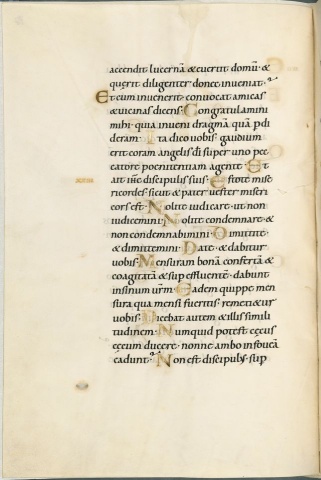 accendit lucernā & euertit domū· &
querit diligenter donec inveniat·
Et cum invenerit convocat amicas
& vicinas dicens· Congratulamini
mihi· quia inveni dragmā quā pdi
deram· Ita dico vobis gaudium
erit coram angelis dī super uno pec
catore poenitentiam agente· Et
ait ihc discipulis suis· Estote mise
ricordes sicut & pater vester miseri
cors est· Nolite iudicare· ut non
iudicemini· Nolite condemnare· &
non condemnabimini· Dimittite·
& dimittemini· Date· & dabitur
vobis· Mensuram bonā confertā &
coagitatā & sup effluentē· dabunt
in sinum vrm· Eadem quippe men
sura qua mensi fueritis· remetie&ur
vobis· Dicebat autem & illis simili
tudinem· Numquid potest cęcus
cęcum ducere· nonne ambo in foueā
cadunt· Non est discipulus sup